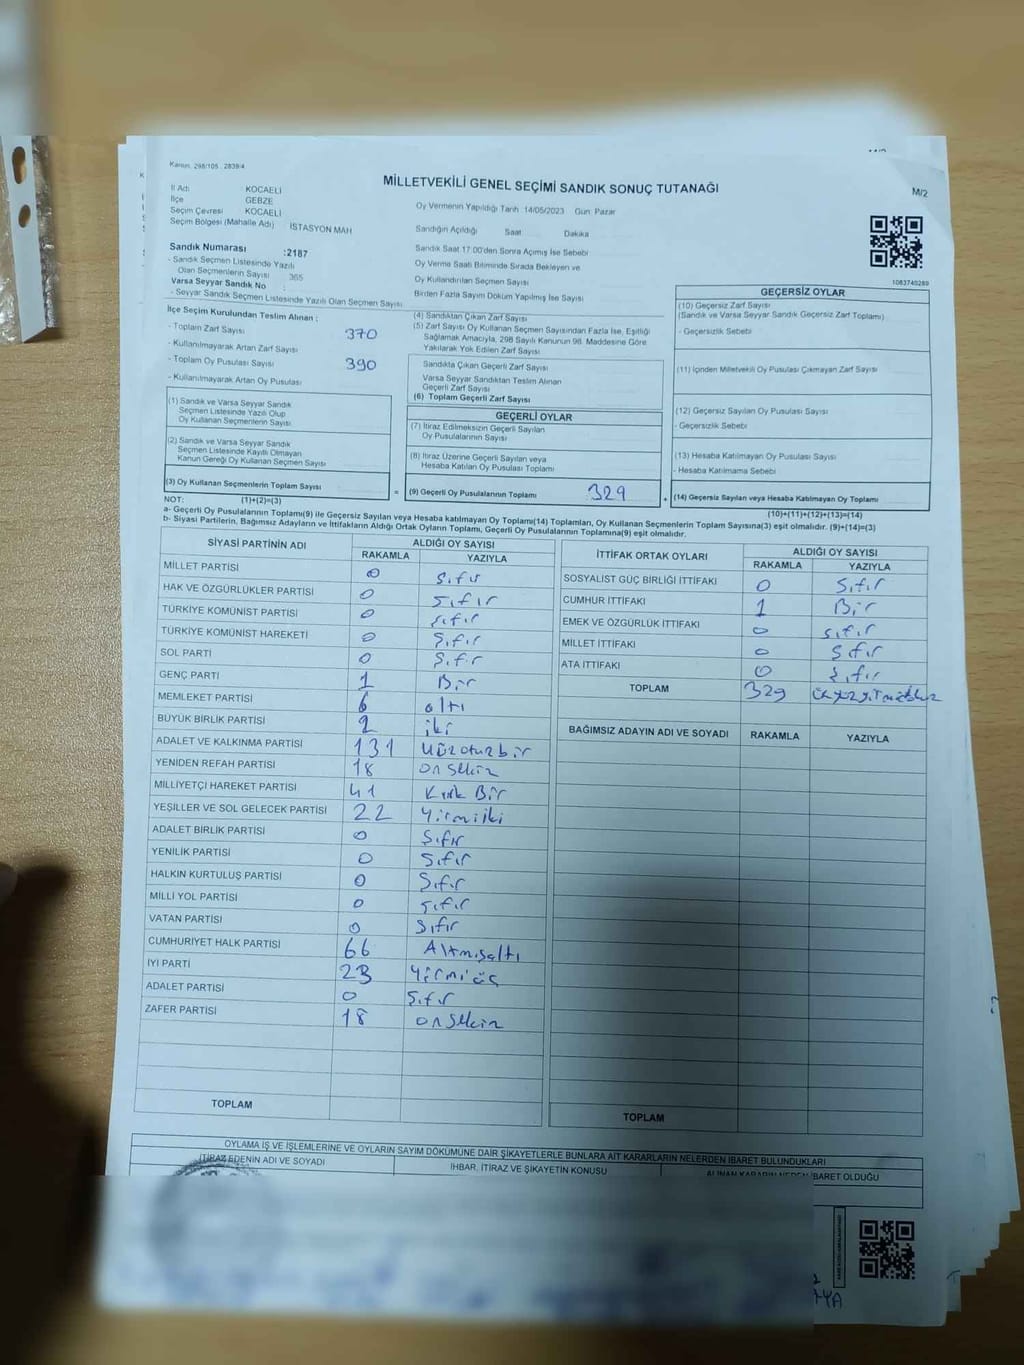 Kanun. 298/105 . 2839/4
MİLLETVEKİLİ GENEL SEÇİMİ SANDIK SONUÇ TUTANAĞI
M/2
İl Adı : KOCAELİ
İlçe : GEBZE
Seçim Çevresi : KOCAELİ
Seçim Bölgesi (Mahalle Adı) : İSTASYON MAH
Sandık Numarası :2187
- Sandık Seçmen Listesinde Yazılı
Olan Seçmenlerin Sayısı : 365
Varsa Seyyar Sandık No :
- Seyyar Sandık Seçmen Listesinde Yazılı Olan Seçmen Sayısı
Oy Vermenin Yapıldığı Tarih 14/05/2023 Gün: Pazar
Sandığın Açıldığı Saat Dakika
Sandık Saat 17:00'den Sonra Açımış İse Sebebi
Oy Verme Saati Bitiminde Sırada Bekleyen ve
Oy Kullandırılan Seçmen Sayısı
Birden Fazla Sayım Döküm Yapılmış İse Sayısı
1083740289
İlçe Seçim Kurulundan Teslim Alınan :
- Toplam Zarf Sayısı 370
- Kullanılmayarak Artan Zarf Sayısı
- Toplam Oy Pusulası Sayısı 390
- Kullanılmayarak Artan Oy Pusulası
(1) Sandık ve Varsa Seyyar Sandık
Seçmen Listesinde Yazılı Olup
Oy Kullanan Seçmenlerin Sayısı
(2) Sandık ve Varsa Seyyar Sandık
Seçmen Listesinde Kayıtlı Olmayan
Kanun Gereği Oy Kullanan Seçmen Sayısı
(3) Oy Kullanan Seçmenlerin Toplam Sayısı
(1)+(2)=(3)
(4) Sandıktan Çıkan Zarf Sayısı
(5) Zarf Sayısı Oy Kullanan Seçmen Sayısından Fazla İse, Eşitliği
Sağlamak Amacıyla, 298 Sayılı Kanunun 98. Maddesine Göre
Yakılarak Yok Edilen Zarf Sayısı
Sandıkta Çıkan Geçerli Zarf Sayısı
Varsa Seyyar Sandıktan Teslim Alınan
Geçerli Zarf Sayısı
(6) Toplam Geçerli Zarf Sayısı
GEÇERLİ OYLAR
(7) İtiraz Edilmeksizin Geçerli Sayılan
Oy Pusulalarının Sayısı
(8) İtiraz Üzerine Geçerli Sayılan veya
Hesaba Katılan Oy Pusulası Toplamı
= (9) Geçerli Oy Pusulalarının Toplamı 329 +
GEÇERSİZ OYLAR
(10) Geçersiz Zarf Sayısı
(Sandık ve Varsa Seyyar Sandık Geçersiz Zarf Toplamı)
- Geçersizlik Sebebi
(11) İçinden Milletvekili Oy Pusulası Çıkmayan Zarf Sayısı
(12) Geçersiz Sayılan Oy Pusulası Sayısı
- Geçersizlik Sebebi
(13) Hesaba Katılmayan Oy Pusulası Sayısı
- Hesaba Katılmama Sebebi
(14) Geçersiz Sayılan veya Hesaba Katılmayan Oy Toplamı
(10)+(11)+(12)+(13)=(14)
NOT:
a- Geçerli Oy Pusulalarının Toplamı(9) ile Geçersiz Sayılan veya Hesaba katılmayan Oy Toplamı(14) Toplamları, Oy Kullanan Seçmenlerin Toplam Sayısına(3) eşit olmalıdır. (9)+(14)=(3)
b- Siyasi Partilerin, Bağımsız Adayların ve İttifakların Aldığı Ortak Oyların Toplamı, Geçerli Oy Pusulalarının Toplamına(9) eşit olmalıdır.
SİYASİ PARTİNİN ADI ALDIĞI OY SAYISI
RAKAMLA YAZIYLA
MİLLET PARTİSİ 0 Sıfır
HAK VE ÖZGÜRLÜKLER PARTİSİ 0 Sıfır
TÜRKİYE KOMÜNİST PARTİSİ 0 Sıfır
TÜRKİYE KOMÜNİST HAREKETİ 0 Sıfır
SOL PARTİ 0 Sıfır
GENÇ PARTİ 1 Bir
MEMLEKET PARTİSİ 6 altı
BÜYÜK BİRLİK PARTİSİ 2 iki
ADALET VE KALKINMA PARTİSİ 131 Yüzotuzbir
YENİDEN REFAH PARTİSİ 18 onsekiz
MİLLİYETÇİ HAREKET PARTİSİ 41 Kırk Bir
YEŞİLLER VE SOL GELECEK PARTİSİ 22 Yirmiiki
ADALET BİRLİK PARTİSİ 0 Sıfır
YENİLİK PARTİSİ 0 Sıfır
HALKIN KURTULUŞ PARTİSİ 0 Sıfır
MİLLİ YOL PARTİSİ 0 Sıfır
VATAN PARTİSİ 0 Sıfır
CUMHURİYET HALK PARTİSİ 66 Altmışaltı
İYİ PARTİ 23 Yirmi üç
ADALET PARTİSİ 0 Sıfır
ZAFER PARTİSİ 18 onsekiz
TOPLAM
İTTİFAK ORTAK OYLARI ALDIĞI OY SAYISI
RAKAMLA YAZIYLA
SOSYALİST GÜÇ BİRLİĞİ İTTİFAKI 0 Sıfır
CUMHUR İTTİFAKI 1 Bir
EMEK VE ÖZGÜRLÜK İTTİFAKI 0 Sıfır
MİLLET İTTİFAKI 0 Sıfır
ATA İTTİFAKI 0 Sıfır
TOPLAM 329 üçyüzyirmidokuz
BAĞIMSIZ ADAYIN ADI VE SOYADI RAKAMLA YAZIYLA
TOPLAM
OYLAMA İŞ VE İŞLEMLERİNE VE OYLARIN SAYIM DÖKÜMÜNE DAİR ŞİKAYETLERLE BUNLARA AİT KARARLARIN NELERDEN İBARET BULUNDUKLARI
İTİRAZ EDENİN ADI VE SOYADI İHBAR, İTİRAZ VE ŞİKAYETİN KONUSU ALINAN KARARIN NEDEN İBARET OLDUĞU